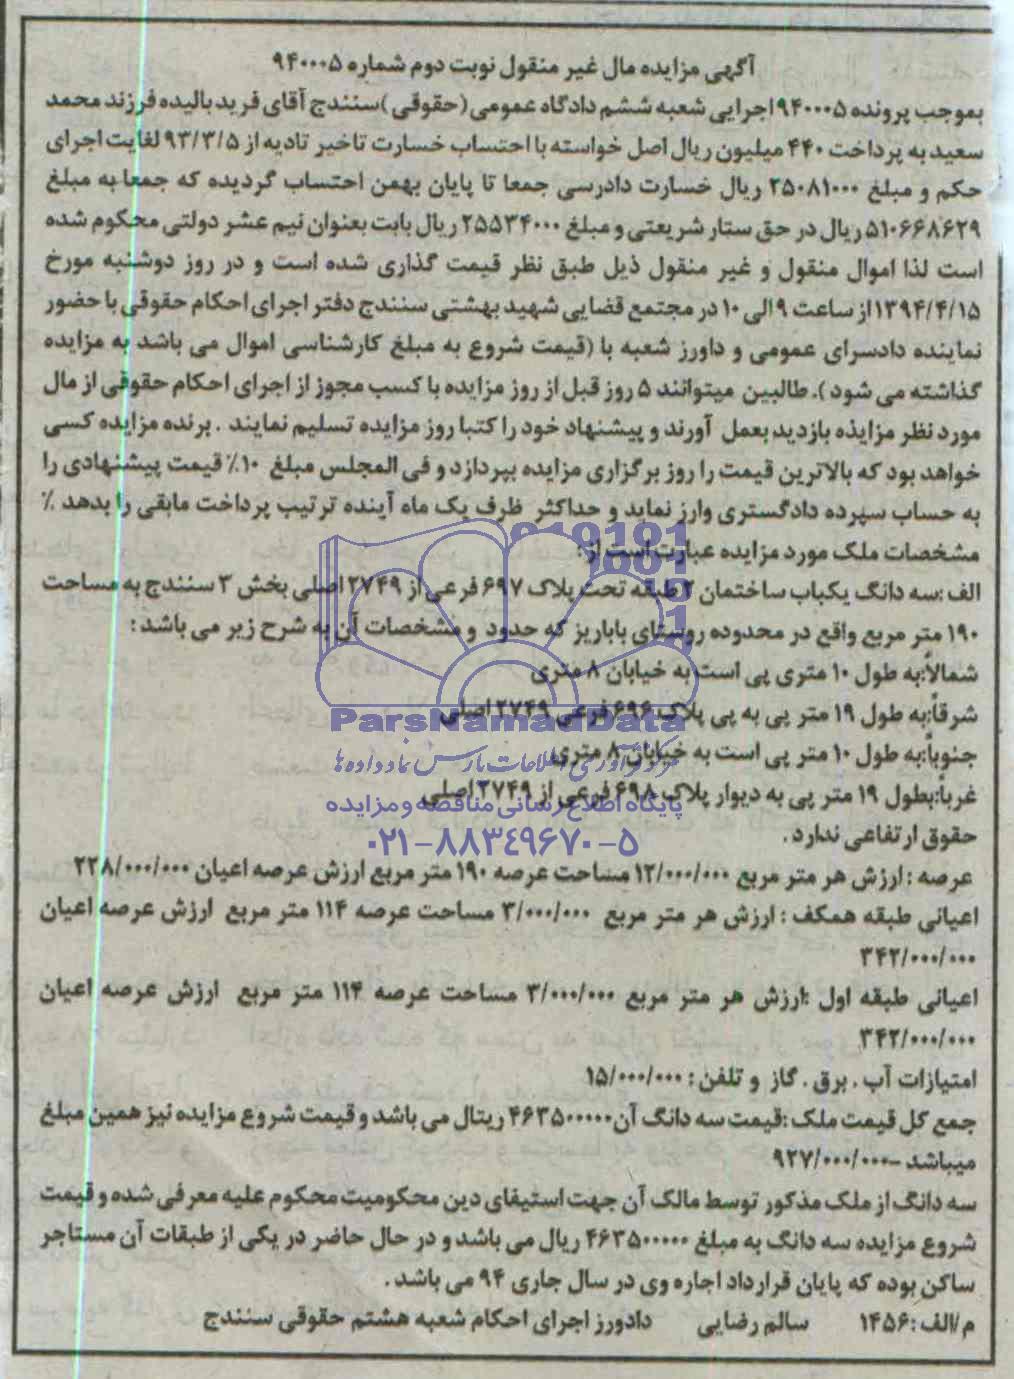 آگهی مزایده مال غیر منقول نوبت دوم شماره ۹۴۰۰۰۵
بموجب پرونده ۹۴۰۰۰۵ اجرایی شعبه ششم دادگاه عمومی (حقوقی) سنندج آقای فرید بالیده فرزند محمد
سعید به پرداخت ۴۴۰ میلیون ریال اصل خواسته با احتساب خسارت تاخیر تادیه از ۹۳/۳/۵ لغایت اجرای
حکم و مبلغ ۲۵۰۸۱۰۰۰ ریال خسارت دادرسی جمعا تا پایان بهمن احتساب گردیده که جمعا به مبلغ
۵۱۰۶۶۸۶۲۹ ریال در حق ستار شریعتی و مبلغ ۲۵۵۳۴۰۰۰ ریال بابت بعنوان نیم عشر دولتی محکوم شده
است لذا اموال منقول و غیر منقول ذیل طبق نظر قیمت گذاری شده است و در روز دوشنبه مورخ
۱۳۹۴/۴/۱۵ از ساعت ۹ الی ۱۰ در مجتمع قضایی شهید بهشتی سنندج دفتر اجرای احکام حقوقی با حضور
نماینده دادسرای عمومی و داورز شعبه با (قیمت شروع به مبلغ کارشناسی اموال می باشد به مزایده
گذاشته می شود ). طالبین میتوانند ۵ روز قبل از روز مزایده با کسب مجوز از اجرای احکام حقوقی از مال
مورد نظر مزایذه بازدید بعمل آورند و پیشنهاد خود را کتبا روز مزایده تسلیم نمایند . برنده مزایده کسی
خواهد بود که بالاترین قیمت را روز برگزاری مزایده بپردازد و فی المجلس مبلغ ۱۰٪ قیمت پیشنهادی را
به حساب سپرده دادگستری وارز نماید و حداکثر ظرف یک ماه آینده ترتیب پرداخت مابقی را بدهد ٪
مشخصات ملک مورد مزایده عبارت است از :
الف :سه دانگ یکباب ساختمان ۲ طبقه تحت پلاک ۶۹۷ فرعی از ۲۷۴۹ اصلی بخش ۳ سنندج به مساحت
۱۹۰ متر مربع واقع در محدوده روستای باباریز که حدود و مشخصات آن به شرح زیر می باشد :
شمالاً:به طول ۱۰ متری پی است به خیابان ۸ متری
شرقاً:به طول ۱۹ متر پی به پی پلاک ۶۹۶ فرعی ۲۷۴۹ اصلی
جنوباً:به طول ۱۰ متر پی است به خیابان ۸ متری
غرباً:بطول ۱۹ متر پی به دیوار پلاک ۶۹۸ فرعی از ۲۷۴۹ اصلی
حقوق ارتفاعی ندارد .
عرصه : ارزش هر متر مربع ۱۲/۰۰۰/۰۰۰ مساحت عرصه ۱۹۰ متر مربع ارزش عرصه اعیان ۲۲۸/۰۰۰/۰۰۰
اعیانی طبقه همکف : ارزش هر متر مربع ۳/۰۰۰/۰۰۰ مساحت عرصه ۱۱۴ متر مربع ارزش عرصه اعیان
۳۴۲/۰۰۰/۰۰۰
اعیانی طبقه اول :ارزش هر متر مربع ۳/۰۰۰/۰۰۰ مساحت عرصه ۱۱۴ متر مربع ارزش عرصه اعیان
۳۴۲/۰۰۰/۰۰۰
امتیازات آب . برق . گاز و تلفن : ۱۵/۰۰۰/۰۰۰
جمع کل قیمت ملک :قیمت سه دانگ آن ۴۶۳۵۰۰۰۰۰ ریتال می باشد و قیمت شروع مزایده نیز همین مبلغ
میباشد –۹۲۷/۰۰۰/۰۰۰
سه دانگ از ملک مذکور توسط مالک آن جهت استیفای دین محکومیت محکوم علیه معرفی شده و قیمت
شروع مزایده سه دانگ به مبلغ ۴۶۳۵۰۰۰۰۰ ریال می باشد و در حال حاضر در یکی از طبقات آن مستاجر
ساکن بوده که پایان قرارداد اجاره وی در سال جاری ۹۴ می باشد .
م/الف :۱۴۵۶ سالم رضایی دادورز اجرای احکام شعبه هشتم حقوقی سنندج
ParsNamadData
مرکز فرآوری اطلاعات پارس نماد داده ها
پایگاه اطلاع رسانی مناقصه و مزایده
۰۲۱-۸۸۳۴۹۶۷۰-۵